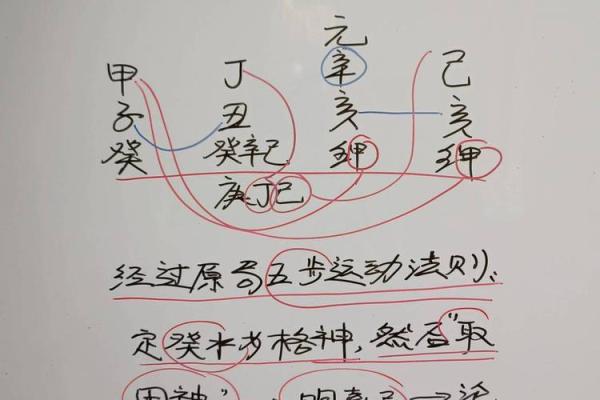 元
甲 丁 辛 己
子 丑 亥 亥
癸 癸辛己 壬甲 壬甲
庚丁己
经过原局五步运动法则,
定癸水为格神,然否"取
用神"